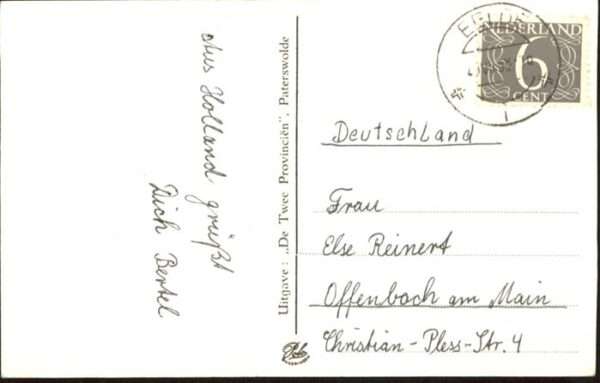 Aus Holland grüßt
Dich Bertel
Uitgave: „De Twee Provinciën", Paterswolde
EELDE
NEDERLAND
6
CENT
Deutschland
Frau
Else Reinert
Offenbach am Main
Christian-Pless-Str. 4